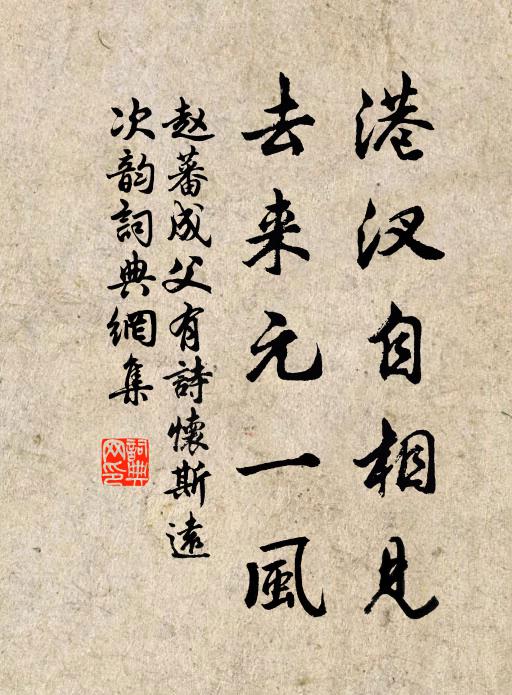 港汊自相見
去来元一風
赵蕃成父有詩懷斯遠
次韵詞典網集
詞典網印